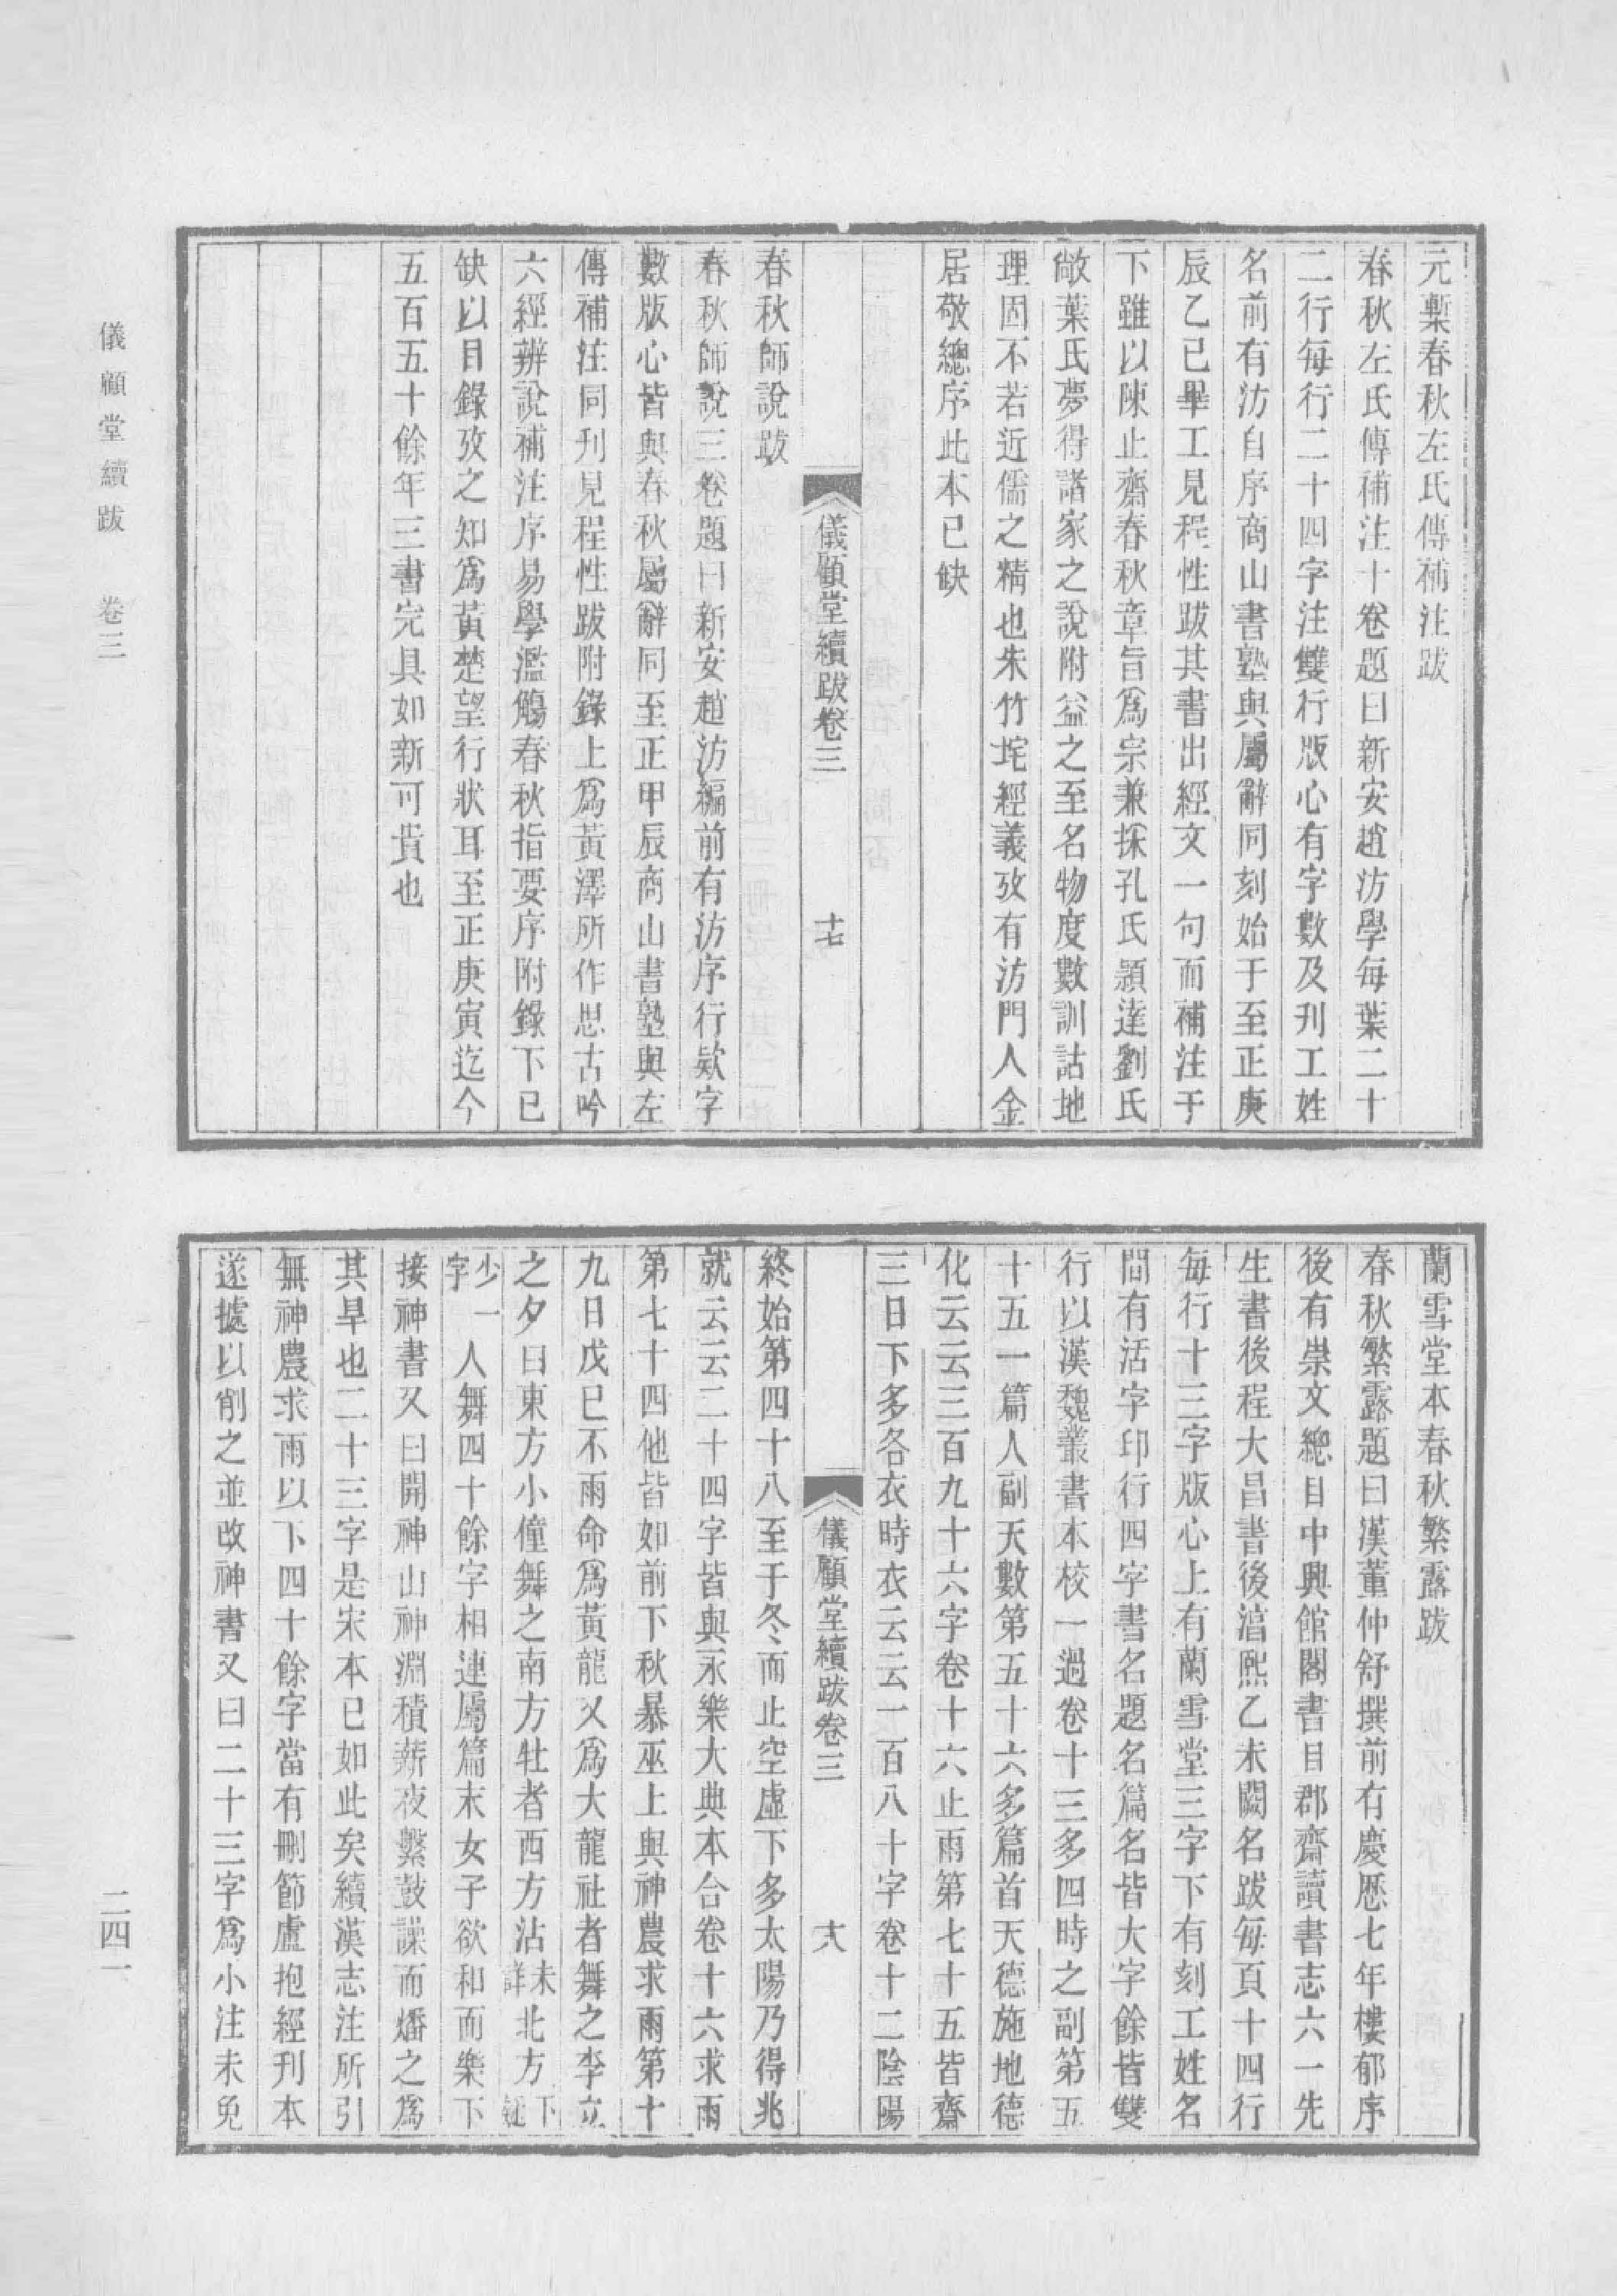 元槧春秋左氏傳補注跋
春秋左氏傳補注十卷題曰新安趙汸學每葉二十
二行每行二十四字注雙行版心有字數及刊工姓
名前有汸自序商山書塾與屬辭同刻始于至正庚
辰乙巳畢工見程性跋其書出經文一句而補注于
下雖以陳止齋春秋章旨爲宗兼採孔氏潁達劉氏
敞葉氏夢得諸家之說附益之至名物度數訓詁地
理固不若近儒之精也朱竹垞經義攷有汸門人金
居敬總序此本已缺
儀顧堂續跋卷三 十七
春秋師說跋
春秋師說三卷題曰新安趙汸編前有汸序行欵字
數版心皆與春秋屬辭同至正甲辰商山書塾與左
傳補注同刊見程性跋附錄上爲黃澤所作思古吟
六經辨說補注序易學濫觴春秋指要序附錄下已
缺以目錄攷之知爲黃楚望行狀耳至正庚寅迄今
五百五十餘年三書完具如新可貴也
蘭雪堂本春秋繁露跋
春秋繁露題曰漢董仲舒撰前有慶歷七年樓郁序
後有崇文總目中興館閣書目郡齋讀書志六一先
生書後程大昌書後湻熙乙未闕名跋每頁十四行
每行十三字版心上有蘭雪堂三字下有刻工姓名
間有活字印行四字書名題名篇名皆大字餘皆雙
行以漢魏叢書本校一過卷十三多四時之副第五
十五一篇人副天數第五十六多篇首天德施地德
化云云三百九十六字卷十六止雨第七十五皆齋
三日下多各衣時衣云云一百八十字卷十二陰陽
儀顧堂續跋卷三 十八
終始第四十八至于冬而止空虛下多太陽乃得兆
就云云二十四字皆與永樂大典本合卷十六求雨
第七十四他皆如前下秋暴巫上與神農求雨第十
九日戊已不雨命爲黃龍又爲大龍社者舞之李立
之夕曰東方小僮舞之南方牡者西方沾未詳北方下疑
少一字人舞四十餘字相連屬篇末女子欲和而樂下
接神書又曰開神山神淵積薪夜繫鼓譟而燔之爲
其旱也二十三字是宋本已如此矣續漢志注所引
無神農求雨以下四十餘字當有刪節盧抱經刊本
遂據以削之並改神書又曰二十三字爲小注未免
儀顧堂續跋 卷三
二四一